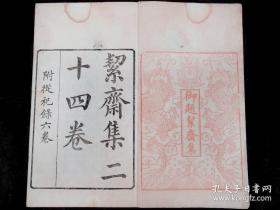 絜齋集二
十四卷
附從祀錄六卷
御題絜齋集
孔夫子旧书网